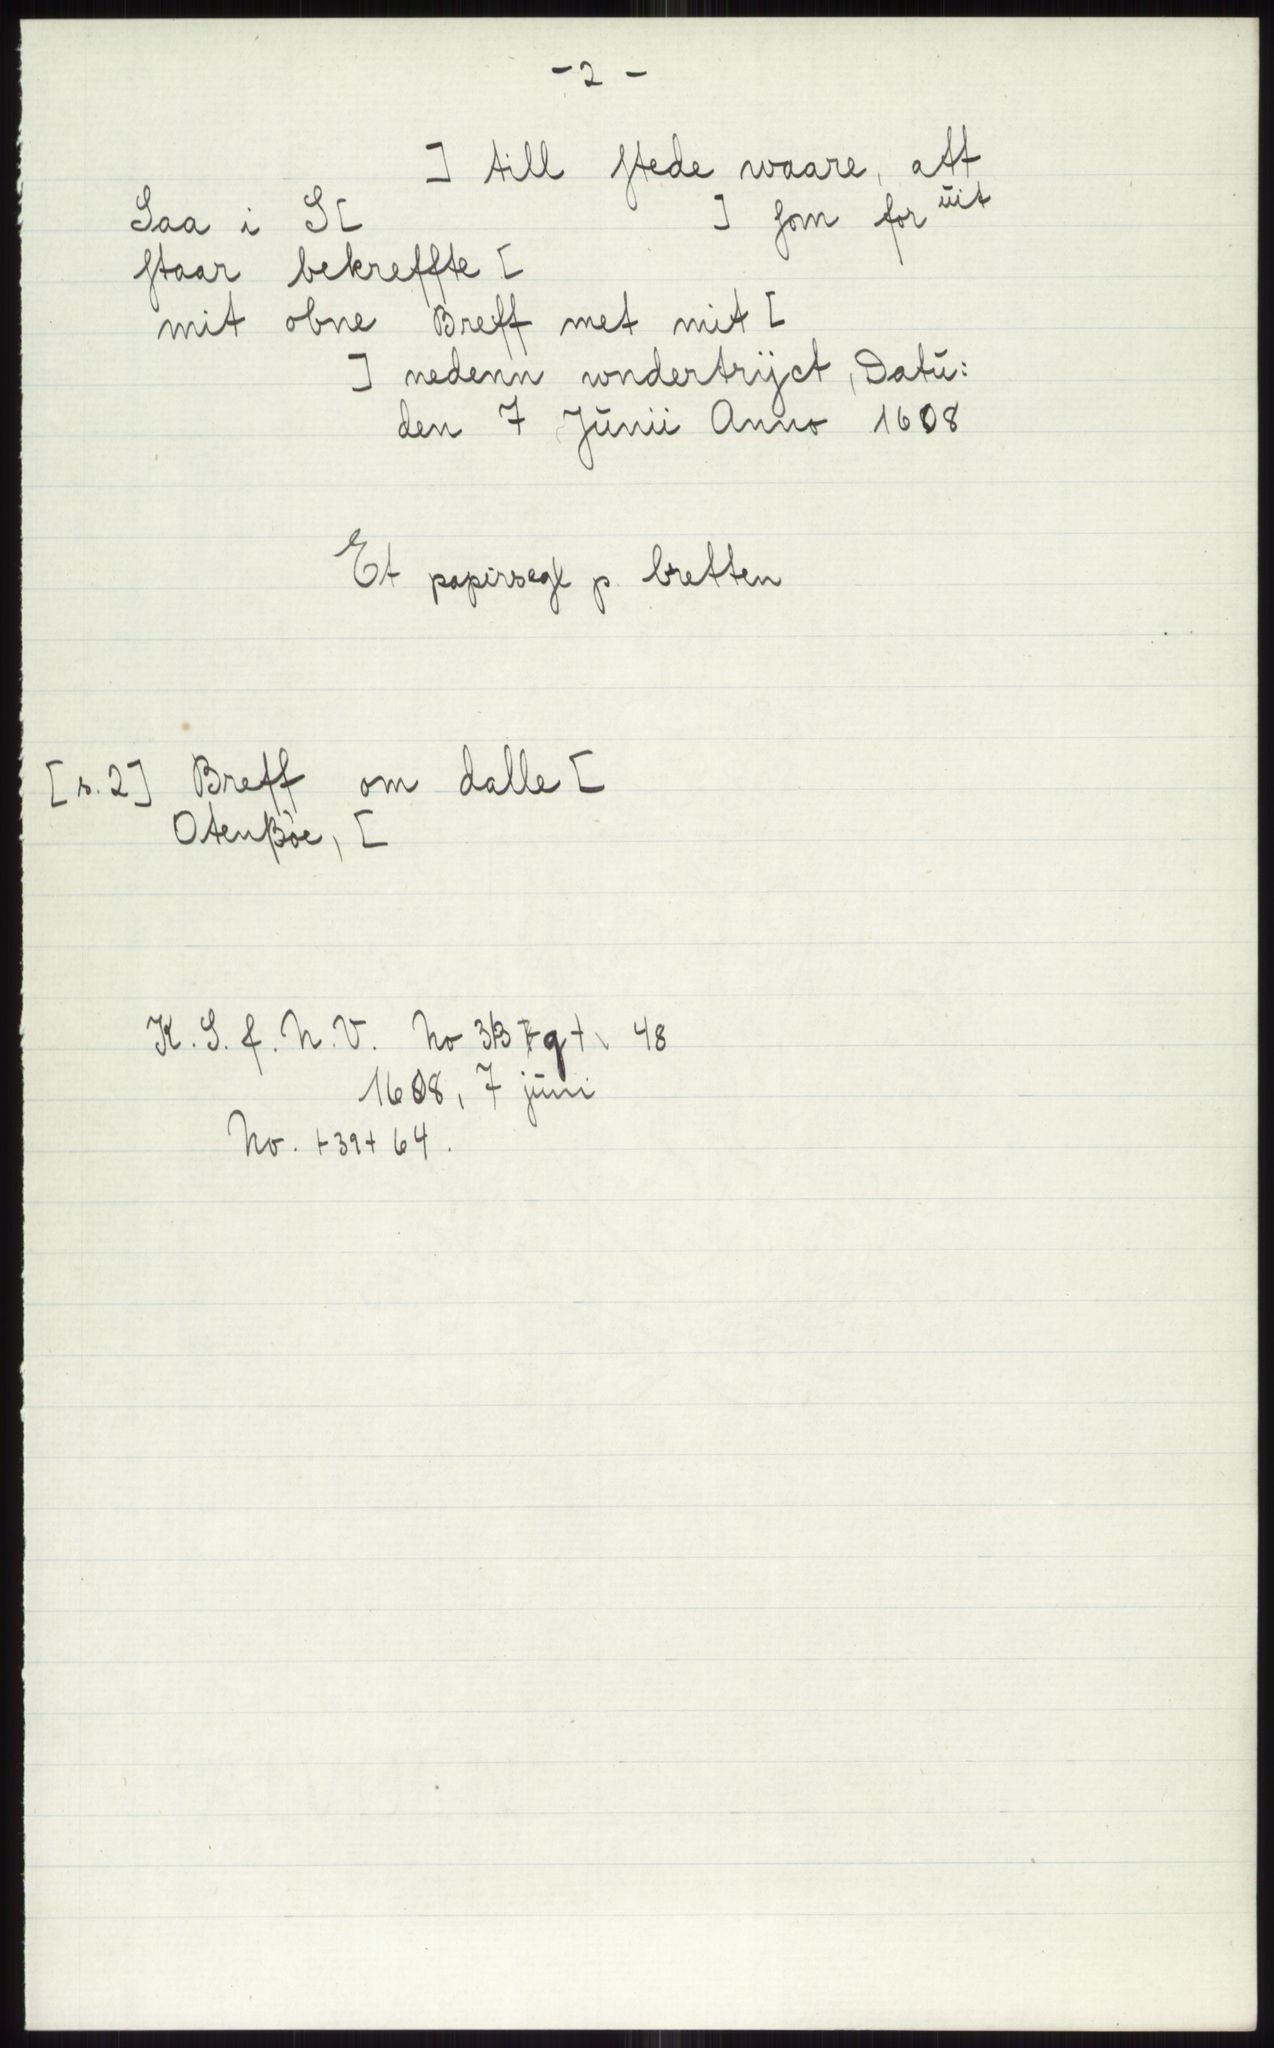 - 2 -
] till stede waare, att
Saa i S[ ] som for uit
staar bekreffte [
mit obne Breff met mit [
] nedenn wndertrijct, Datŭ:
den 7 Jŭnii Anno 1608
Et papirsegl p. bretten
[s. 2] Breff om dalle [
Otenßöe, [
K. S. f. N. V. No 48
1608, 7 jŭni
No. +39+ 64.